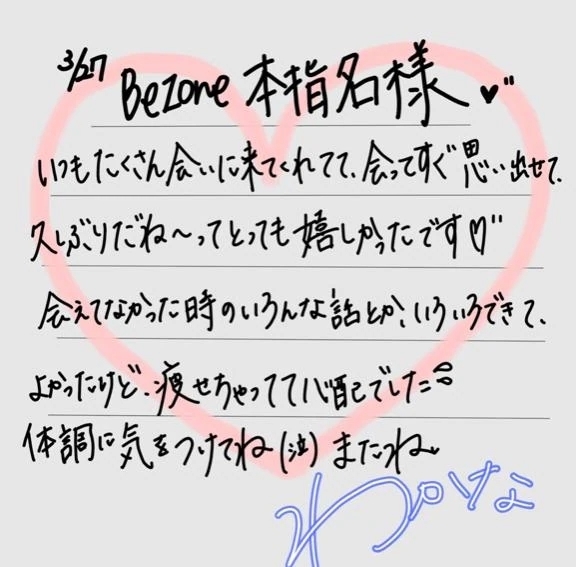 3/27 Bezone 本指名様♥"
いつもたくさん会いに来てくれてて、会ってすぐ思い出せて、
久しぶりだね〜ってとっても嬉しかったです♡"
会えてなかった時のいろんな話とか、いろいろできて、
よかったけど、痩せちゃってて心配でした💦
体調に気をつけてね(泣)またね